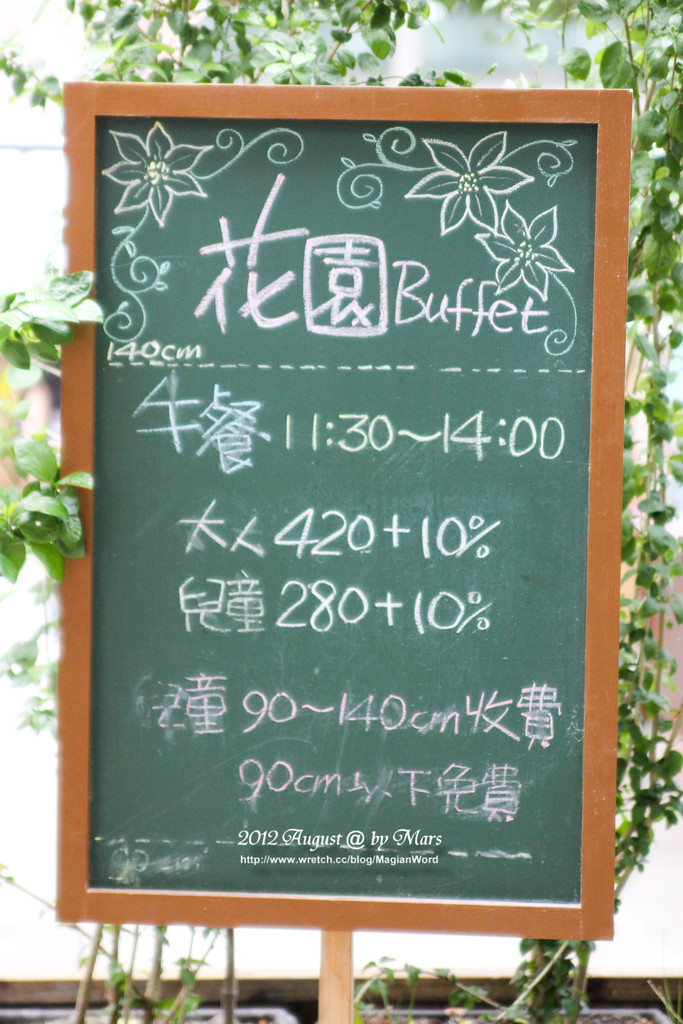 花園Buffet
140cm
午餐 11:30~14:00
大人 420+10%
兒童 280+10%
兒童 90~140cm收費
90cm以下免費
2012 August @ by Mars
http://www.wretch.cc/blog/MagianWord